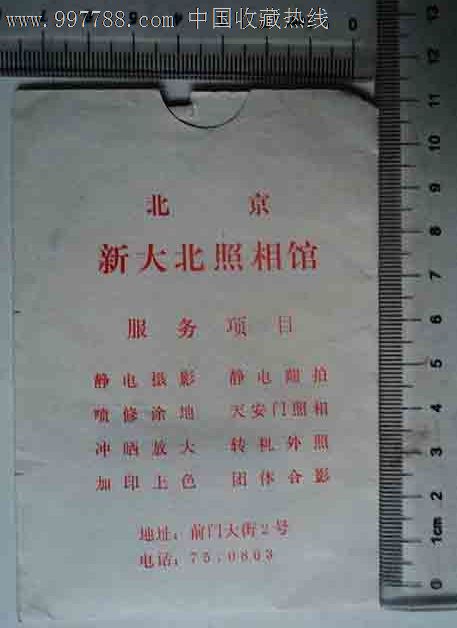 www.997788.com 中国收藏热线
北 京
新大北照相馆
服 务 项 目
静电摄影 静电翻拍
喷修涂地 天安门照相
冲晒放大 转机外照
加印上色 团体合影
地址：前门大街2号
电话：75.0863
0
13
12
11
10
9
8
7
6
5
4
3
2
1cm
0